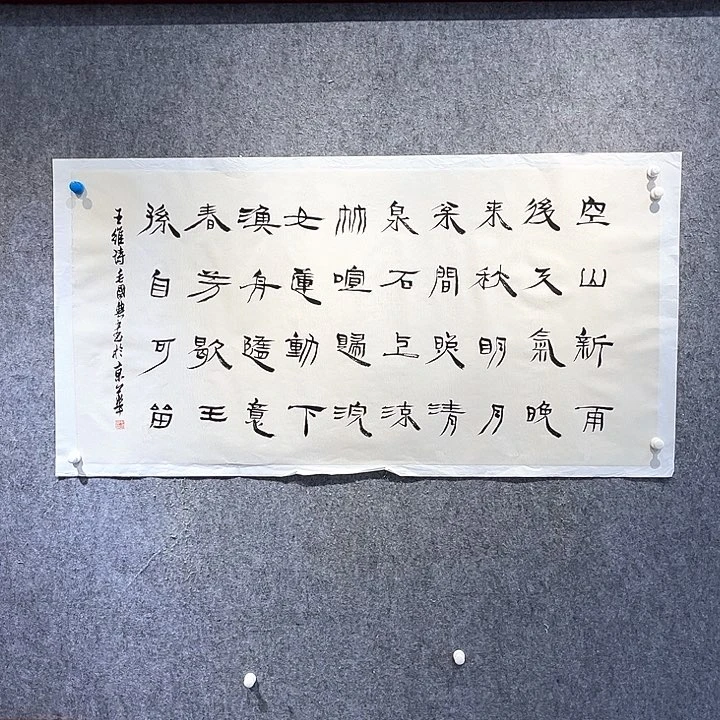 空山新雨
後天氣晚
来秋明月
松間照清
泉石上流
竹喧歸浣
女蓮動下
漁舟隨意
春芳歇王
孫自可留
王維诗毛國典书於京華